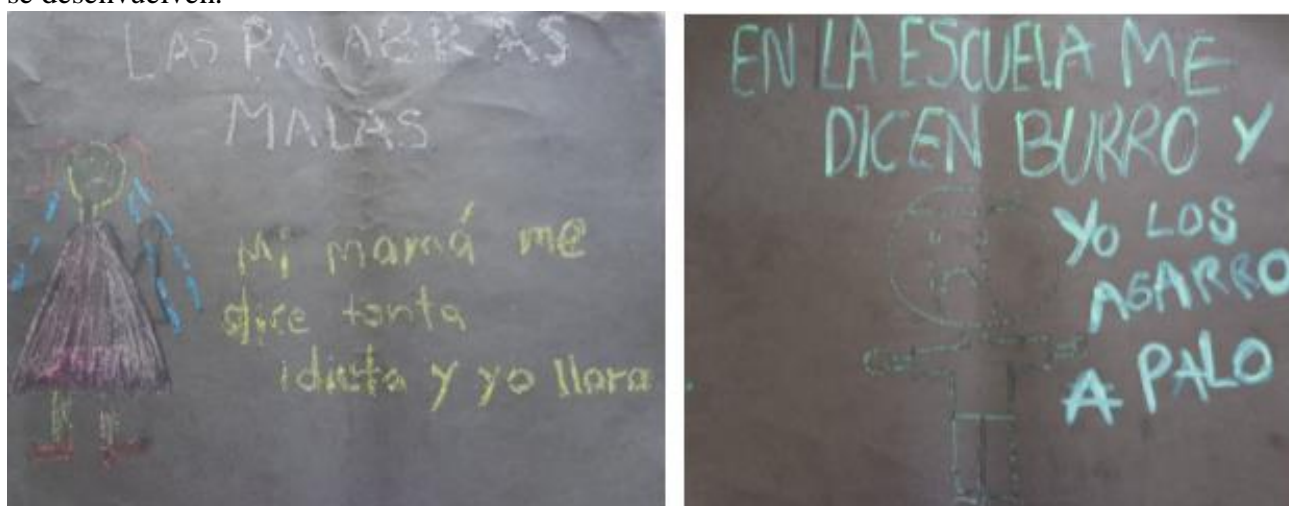 se desenvuelven.
LAS PALABRAS
MALAS
Mi mamá me
dice tonta
idiota y yo lloro
EN LA ESCUELA ME
DICEN BURRO Y
YO LOS
AGARRO
A PALO